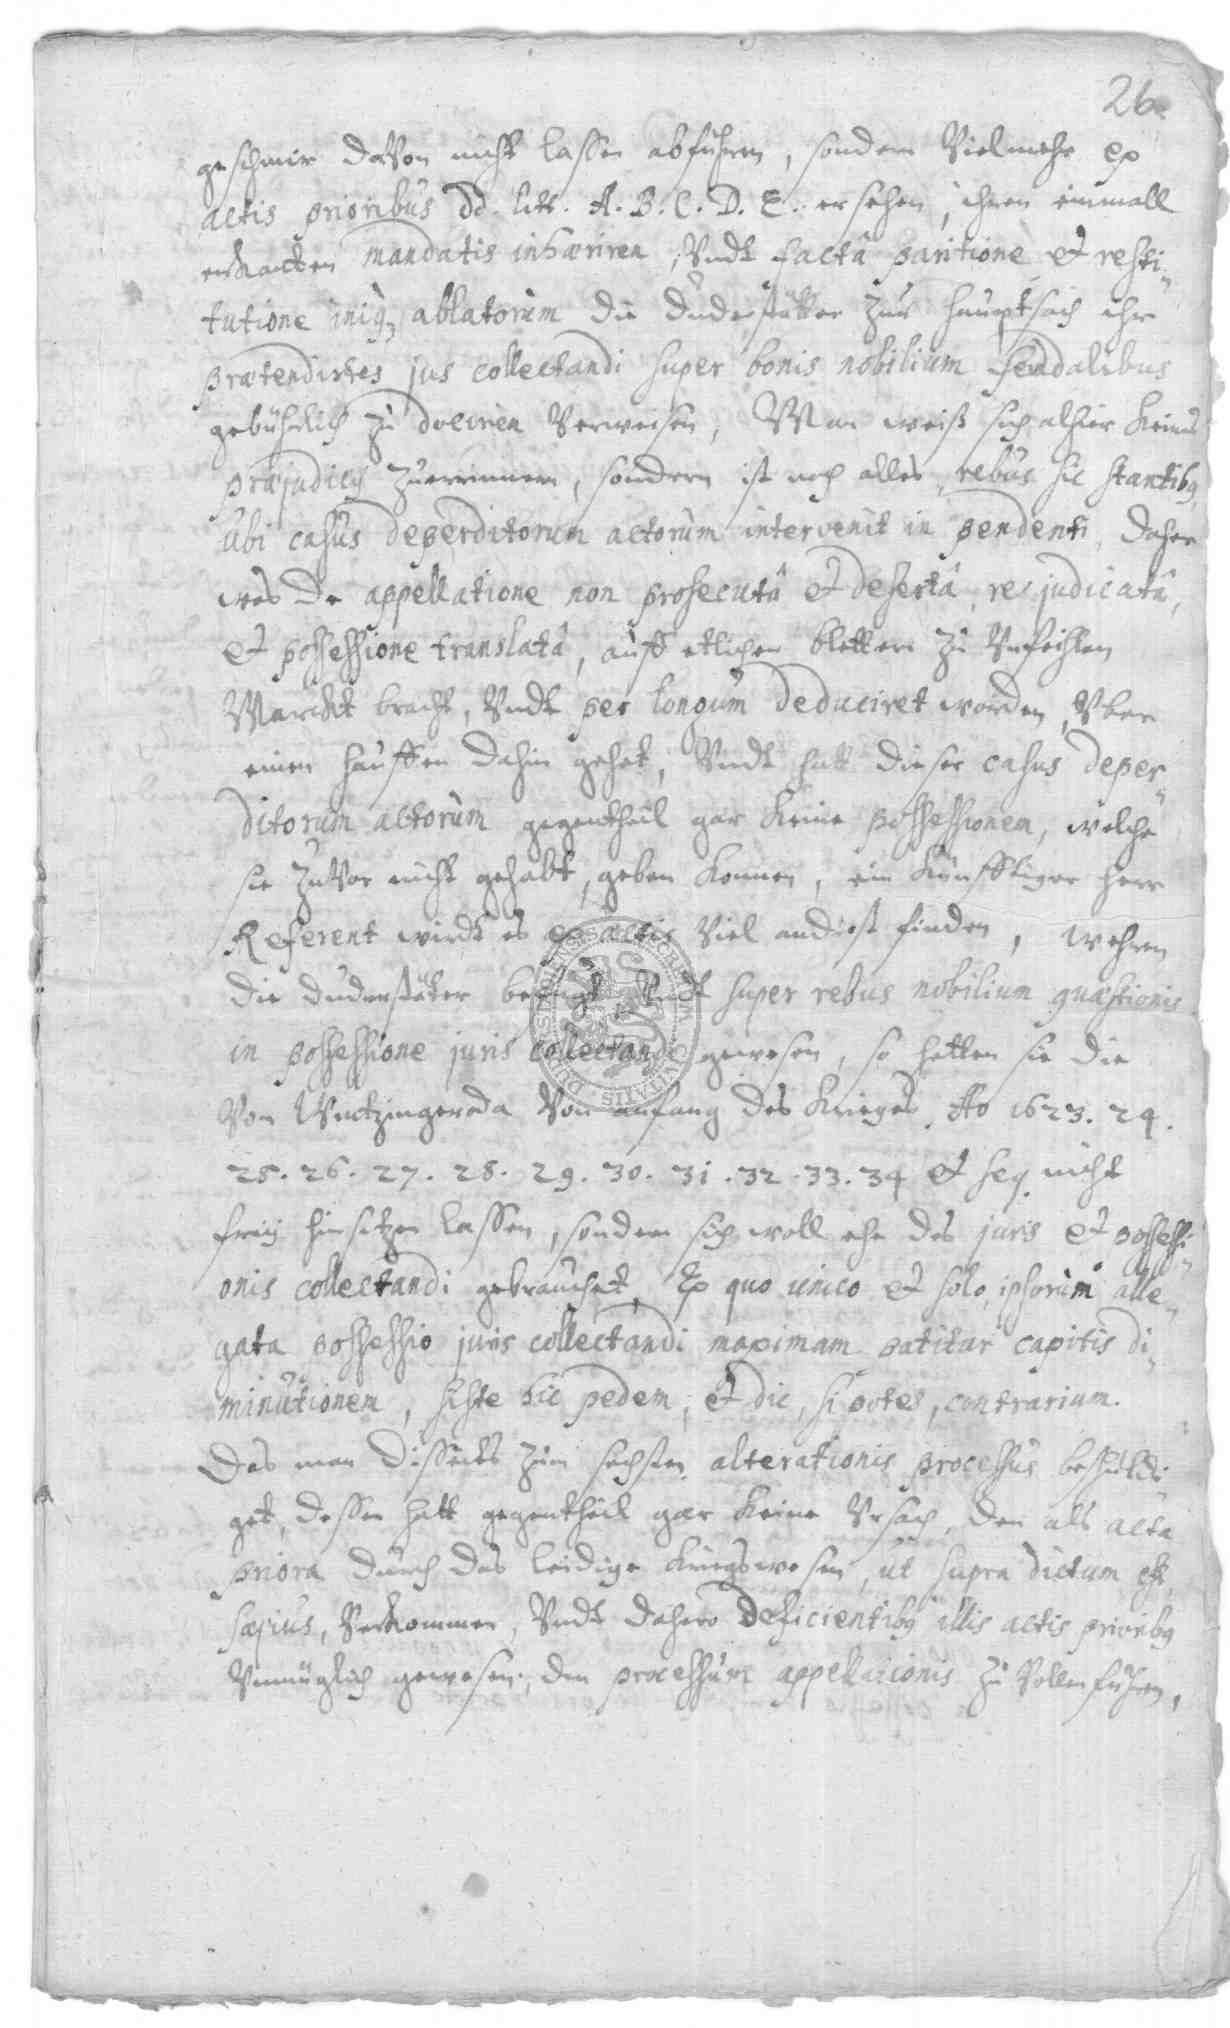 26
geschmir davon nicht lassen abführen, sondern Vielmehr ex
actis prioribus dd. litt. A. B. C. D. E. ersehen, ihren einmall
erkanten mandatis inhæriren, Vndt facta paritione et resti„
tutione iniq, ablatorum die Duderstätter zur hauptsach ihr
prætendirtes jus collectandi super bonis nobilium feudalibus
gebührlich zu dociren Verweisen, Man weiß sich alhier keines
præjudicij zuerinnern, sondern ist noch alles, rebus sic stantibq
ubi casus deperditorum actorum intervenit in pendenti, daher
was de appellatione non prosecutâ et desertâ, re judicatâ,
et possessione translatâ, auff etlichen blettern zu
Marckt bracht, Vndt per longum deduciret worden, Vber
einen hauffen dahin gehet, Vndt hatt dieser casus deper„
ditorum actorum gegentheil gar keine possessionem, welche
sie zuVor nicht gehabt, geben können, ein künfftiger herr
Referent wirdt es ex actis Viel anderst finden, wehren
die Duderstäter befugt, Vndt super rebus nobilium quæstionis
in possessione juris collectandi gewesen, so hetten sie die
Von Wintzingeroda Von anfang des Krieges Ao 1623. 24.
25. 26. 27. 28. 29. 30. 31. 32. 33. 34 et seq. nicht
freij hinsetzen lassen, sondern sich woll ehe des juris et possessi„
onis collectandi gebrauchet, Ex quo unico et solo, ipsorum alle„
gata possessio juris collectandi maximam patitur capitis di„
minutionem, siste hic pedem, et dic, si potes, contrarium.
Das man disseits zum sechsten alterationis processus beschuldi
get, dessen hatt gegentheil gar keine Vrsach, den als acta
priora durch das leidige kriegswesen, ut supra dictum est
sæpius, Verkommen, Vndt dahero deficientibq illis actis prioribq
Vnmüglich gewesen, den processum appellationis zu Vollenführen,